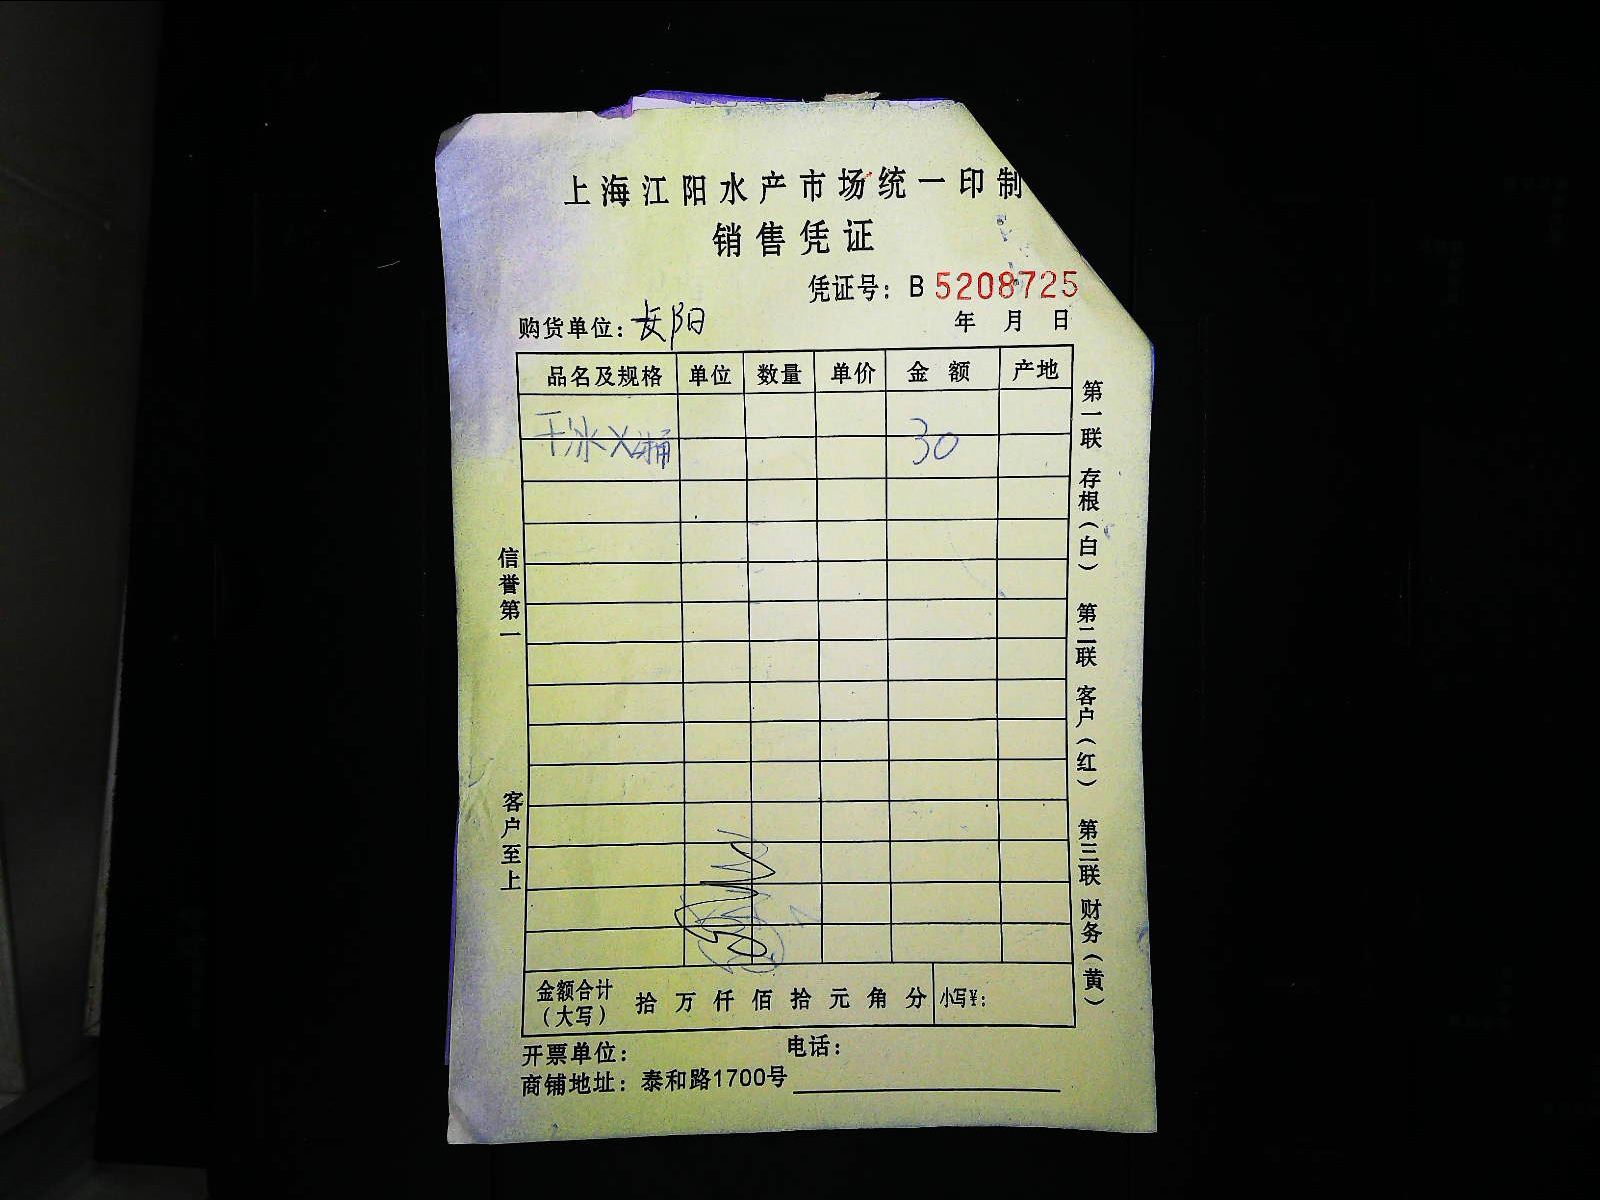 上海江阳水产市场统一印制
销售凭证
凭证号：B 5208725
购货单位：长阳
年 月 日
品名及规格 单位 数量 单价 金额 产地
干冰 30
信誉第一
客户至上
第一联 存根（白） 第二联 客户（红） 第三联 财务（黄）
金额合计（大写） 拾 万 仟 佰 拾 元 角 分 小写¥：
开票单位： 电话：
商铺地址：泰和路1700号